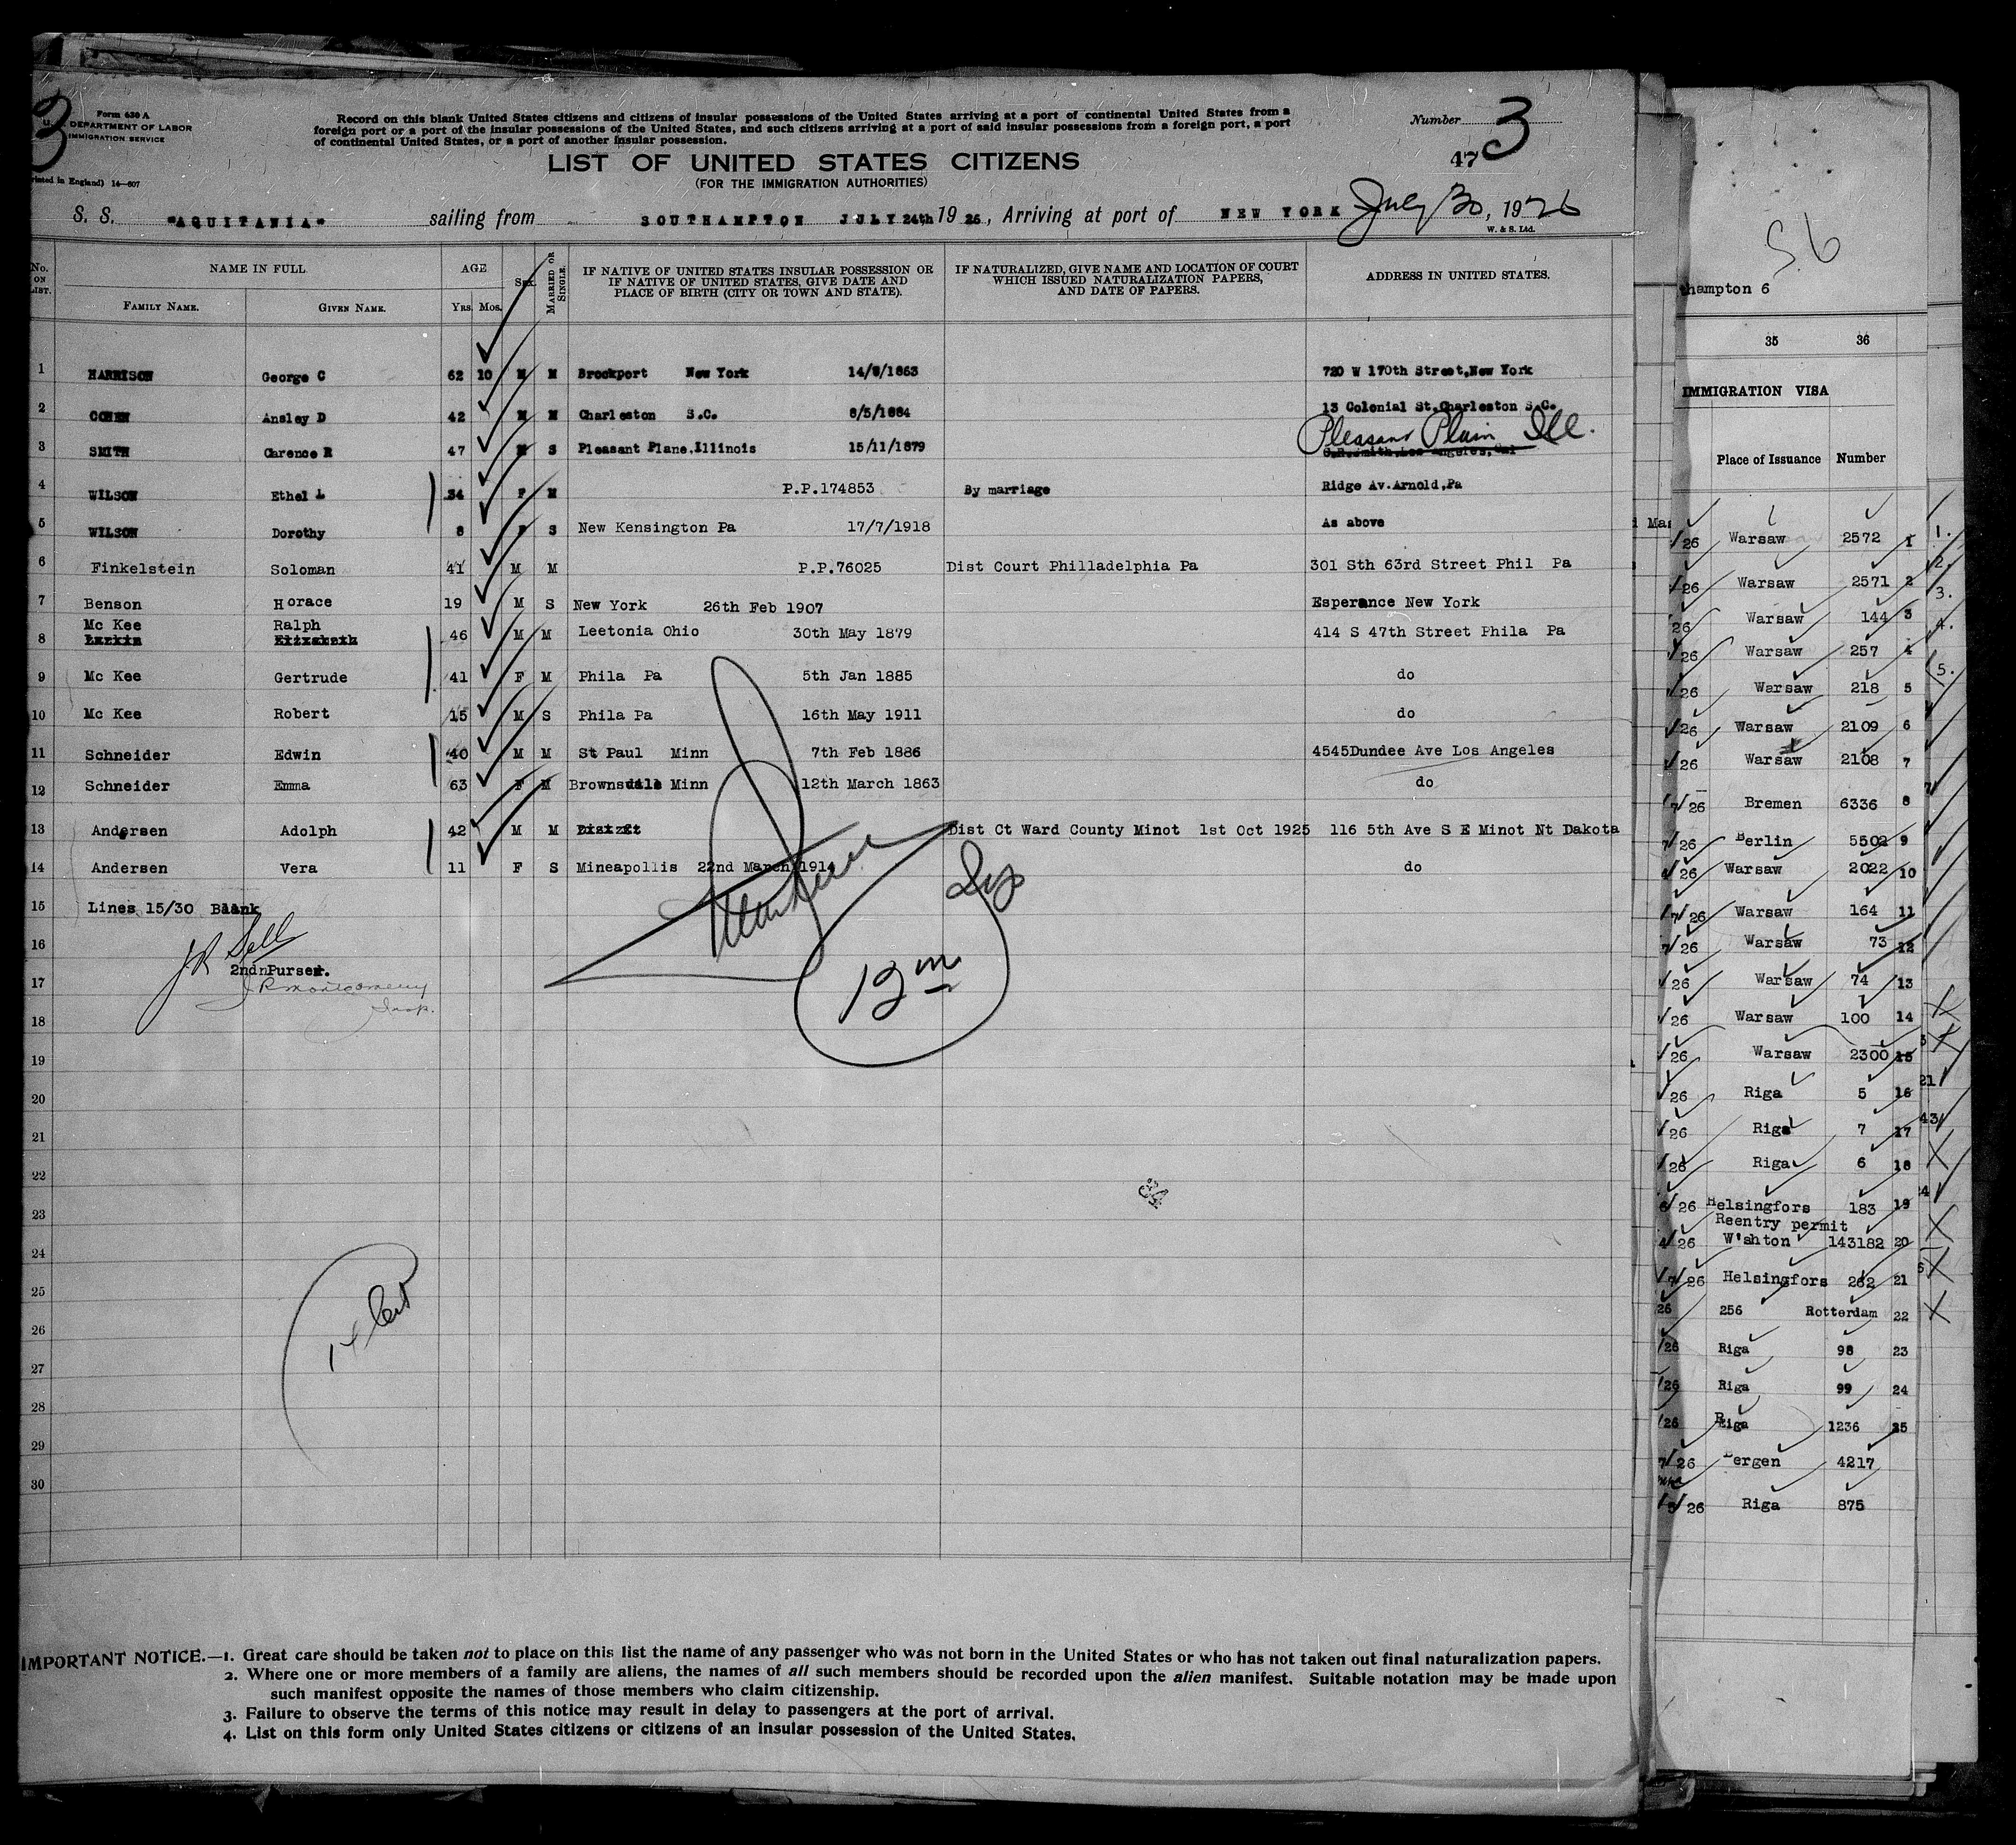 3
Form 630 A
U. S. DEPARTMENT OF LABOR
IMMIGRATION SERVICE
Printed in England) 14—607
Record on this blank United States citizens and citizens of insular possessions of the United States arriving at a port of continental United States from a
foreign port or a port of the insular possessions of the United States, and such citizens arriving at a port of said insular possessions from a foreign port, a port
of continental United States, or a port of another insular possession.
Number 3
47
LIST OF UNITED STATES CITIZENS
(FOR THE IMMIGRATION AUTHORITIES)
S. S. "AQUITANIA" sailing from SOUTHAMPTON JULY 24th 1926, Arriving at port of NEW YORK July 30, 1926
W. & S. Ltd.
No. ON LIST. NAME IN FULL AGE Sex. MARRIED OR SINGLE. IF NATIVE OF UNITED STATES INSULAR POSSESSION OR IF NATIVE OF UNITED STATES, GIVE DATE AND PLACE OF BIRTH (CITY OR TOWN AND STATE). IF NATURALIZED, GIVE NAME AND LOCATION OF COURT WHICH ISSUED NATURALIZATION PAPERS, AND DATE OF PAPERS. ADDRESS IN UNITED STATES.
FAMILY NAME. GIVEN NAME. Yrs. Mos.
1 HARRISON George C 62 10 M M Brockport New York 14/9/1863 720 W 170th Street,New York
2 COHEN Ansley D 42 M M Charleston S.C. 8/5/1884 13 Colonial St.Charleston S.C.
Pleasant Plain Ill.
3 SMITH Clarence R 47 M S Pleasant Plane,Illinois 15/11/1879 C.R.Smith,Los Angeles,Cal
4 WILSON Ethel L 34 F M P.P.174853 By marriage Ridge Av.Arnold,Pa
5 WILSON Dorothy 8 F S New Kensington Pa 17/7/1918 As above
6 Finkelstein Soloman 41 M M P.P.76025 Dist Court Philladelphia Pa 301 Sth 63rd Street Phil Pa
7 Benson Horace 19 M S New York 26th Feb 1907 Esperance New York
Mc Kee Ralph
8 Larkin Elizabeth 46 M M Leetonia Ohio 30th May 1879 414 S 47th Street Phila Pa
9 Mc Kee Gertrude 41 F M Phila Pa 5th Jan 1885 do
10 Mc Kee Robert 15 M S Phila Pa 16th May 1911 do
11 Schneider Edwin 40 M M St Paul Minn 7th Feb 1886 4545Dundee Ave Los Angeles
12 Schneider Emma 63 F M Brownsdale Minn 12th March 1863 do
13 Andersen Adolph 42 M M Dist Ct Dist Ct Ward County Minot 1st Oct 1925 116 5th Ave S E Minot Nt Dakota
14 Andersen Vera 11 F S Mineapollis 22nd March 1914 do
15 Lines 15/30 Blank
16 J R Sell
2nd Purser.
17 J R Montgomery
Insp.
18
19
20
21
22
23
24
25
26
27
28
29
30
12 m
IMPORTANT NOTICE.—1. Great care should be taken not to place on this list the name of any passenger who was not born in the United States or who has not taken out final naturalization papers.
2. Where one or more members of a family are aliens, the names of all such members should be recorded upon the alien manifest. Suitable notation may be made upon
such manifest opposite the names of those members who claim citizenship.
3. Failure to observe the terms of this notice may result in delay to passengers at the port of arrival.
4. List on this form only United States citizens or citizens of an insular possession of the United States.
S6
hampton 6
35 36
IMMIGRATION VISA
Place of Issuance Number
26 Warsaw 2572 1 1.
26 Warsaw 2571 2 2.
26 Warsaw 144 3 3.
26 Warsaw 257 4 4.
26 Warsaw 218 5 5.
26 Warsaw 2109 6
26 Warsaw 2108 7
7/26 Bremen 6336 8
7/26 Berlin 5502 9
26 Warsaw 2022 10
7/26 Warsaw 164 11
7/26 Warsaw 73 12
26 Warsaw 74 13
26 Warsaw 100 14
26 Warsaw 2300 15
26 Riga 5 16 21
26 Riga 7 17 43
26 Riga 6 18
6/26 Helsingfors 183 19
Reentry permit
4/26 W'shton 143182 20
7/26 Helsingfors 262 21
26 256 Rotterdam 22
/26 Riga 98 23
/26 Riga 99 24
/26 Riga 1236 25
7/26 Bergen 4217
/5/26 Riga 875